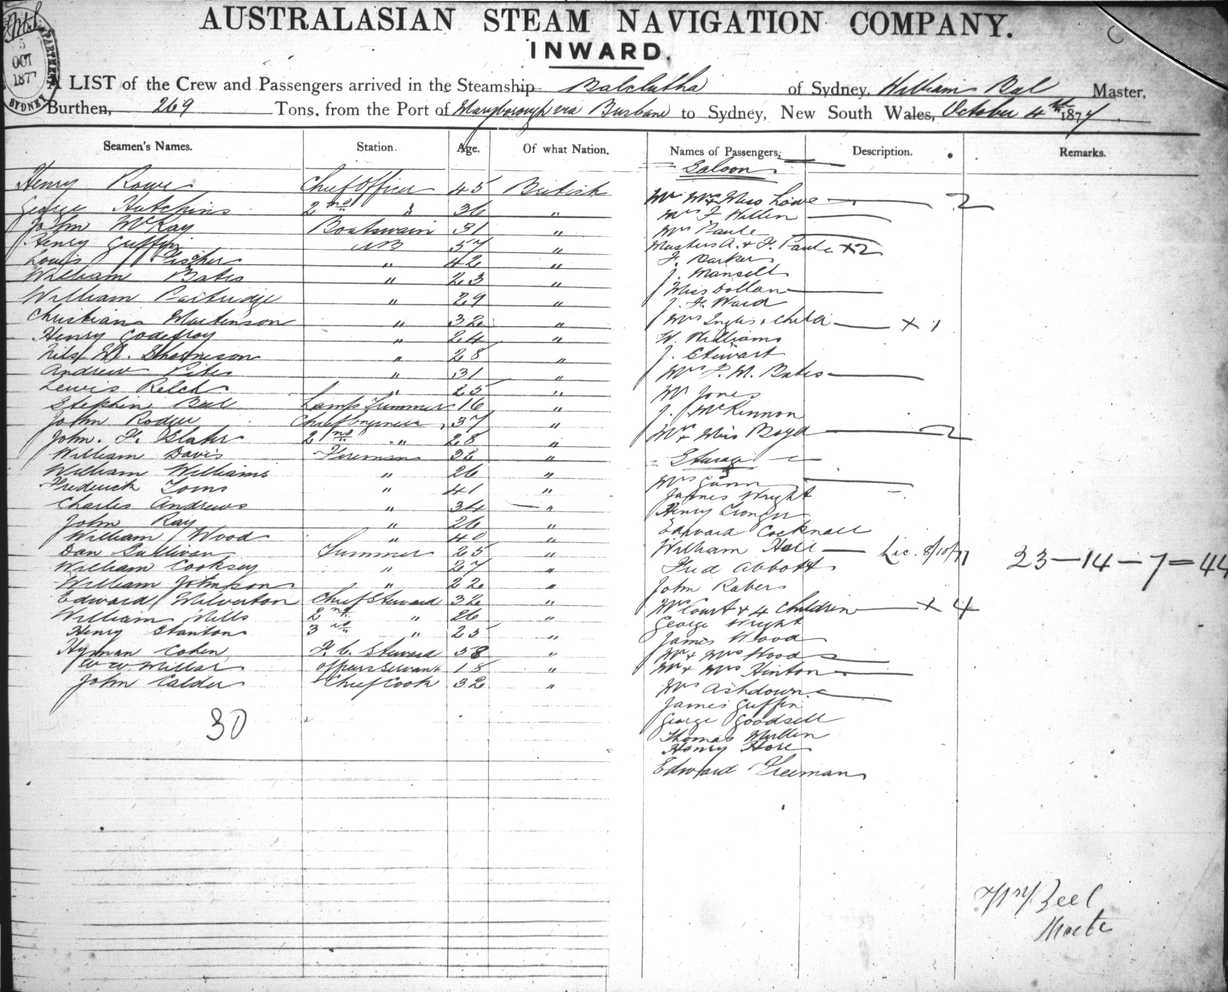 AUSTRALASIAN STEAM NAVIGATION COMPANY.
INWARD.
5
OCT
1877
SYDNEY
A LIST of the Crew and Passengers arrived in the Steamship Balclutha of Sydney, William Beal Master,
Burthen, 269 Tons, from the Port of Maryborough via Brisbane to Sydney, New South Wales, October 4th 1877
Seamen's Names. Station. Age. Of what Nation. Names of Passengers, Description. Remarks.
Saloon
Henry Rowe Chief Officer 45 British
George Hutchins 2nd " 36 "
John McKay Boatswain 31 "
Henry Griffin AB 57 "
Louis Fischer " 42 "
William Bates " 23 "
William Partridge " 29 "
Christian Martinson " 32 "
Henry Godefroy " 24 "
" 28 "
Andrew " 31 "
Lewis " 25 "
Stephen Beal Lamp Trimmer 16 "
John Rodger Chief Engineer 37 "
John. F. 2nd " 28 "
William Davis Fireman 36 "
William Williams " 26 "
Frederick Toms " 41 "
Charles Andrews " 34 "
John Ray " 26 "
William Wood " 40 "
Dan Sullivan Trimmer 25 "
William Cooksey " 27 "
William Johnson " 22 "
Edward Walverton Chief Steward 32 "
William Mills 2nd " 26 "
Henry Stanton 3rd " 25 "
Hyman Cohen F. C. Steward 58 "
W W Millar Officers Servant 18 "
John Calder Chief Cook 32 "
30
Mr Mrs & Miss Lowe 2
Mrs J. Millen
Mrs Paule
Masters A. & F. Paule x 2
J. Darker
J. Mansell
Miss Dollan
J. F. Ward
Mrs Inglis & Child x 1
W. Williams
J. Stewart
Mrs F. M. Bates
Mr Jones
J. McKinnon
Mr & Miss Boyd 2
Steerage
Mrs Gunn
James Wright
Henry
Edward Cocknall
William Hall Lic. 8/10/77 23-14-7=44
Fred Abbott
John Rabers
Mrs Court & 4 Children x 4
George Wright
James Wood
Mr & Mrs Woods
Mr & Mrs Hinton
Mrs Ashdown
James Griffin
George Goodsell
Thomas Mullen
Henry Hore
Edward Freeman
Wm Beel